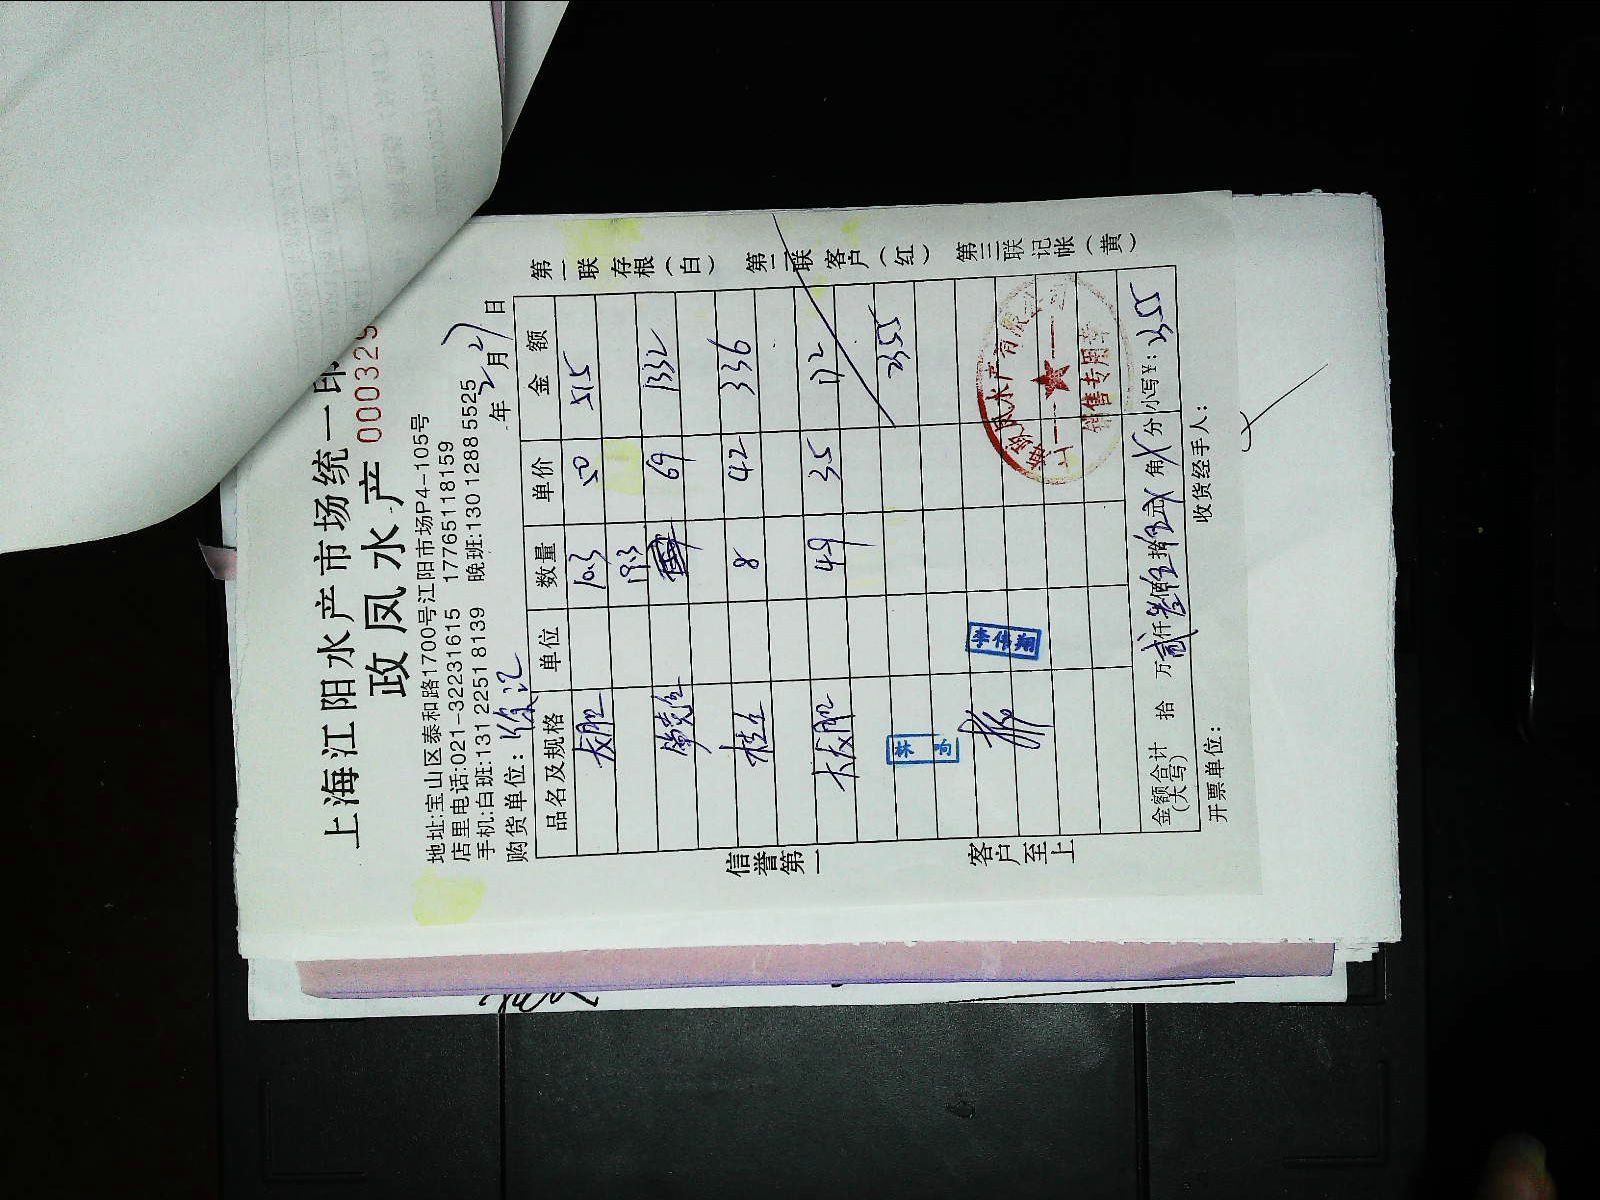 上海江阳水产市场统一印
政凤水产 000329
地址:宝山区泰和路1700号江阳市场P4-105号
店里电话:021-32231615 17765118159
手机:白班:131 2251 8139 晚班:130 1288 5525
购货单位:徐记 年 2 月 27 日
品名及规格 单位 数量 单价 金额
10.3 50 515
19.3 69 1332
8 42 336
4.9 35 172
2355
林 响
李伟翔
金额合计(大写) 拾 万 贰仟叁佰伍拾伍元 角 分 小写¥: 2355
开票单位: 收货经手人:
信誉第一 客户至上
第一联存根(白) 第二联客户(红) 第三联记帐(黄)
销售专用章